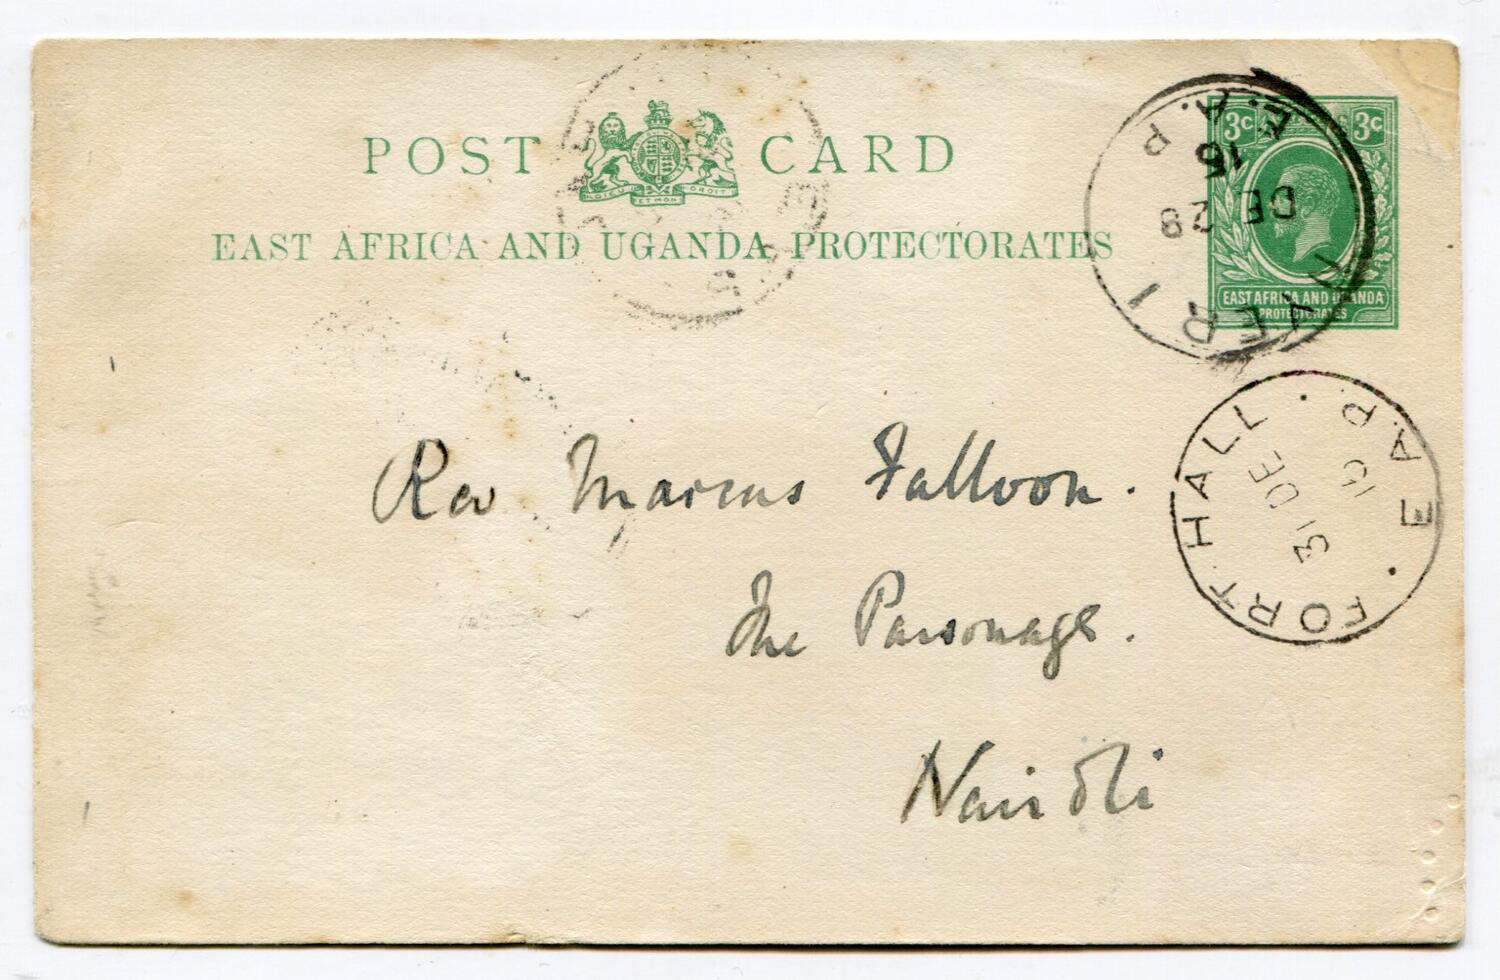 POST CARD
DIEU ET MON DROIT
EAST AFRICA AND UGANDA PROTECTORATES
3c 3c
EAST AFRICA AND UGANDA
PROTECTORATES
NYERI
DE 28
15
E.A.P.
FORT HALL
31 DE
15
E A P
Rev Marcus Falloon.
The Parsonage.
Nairobi